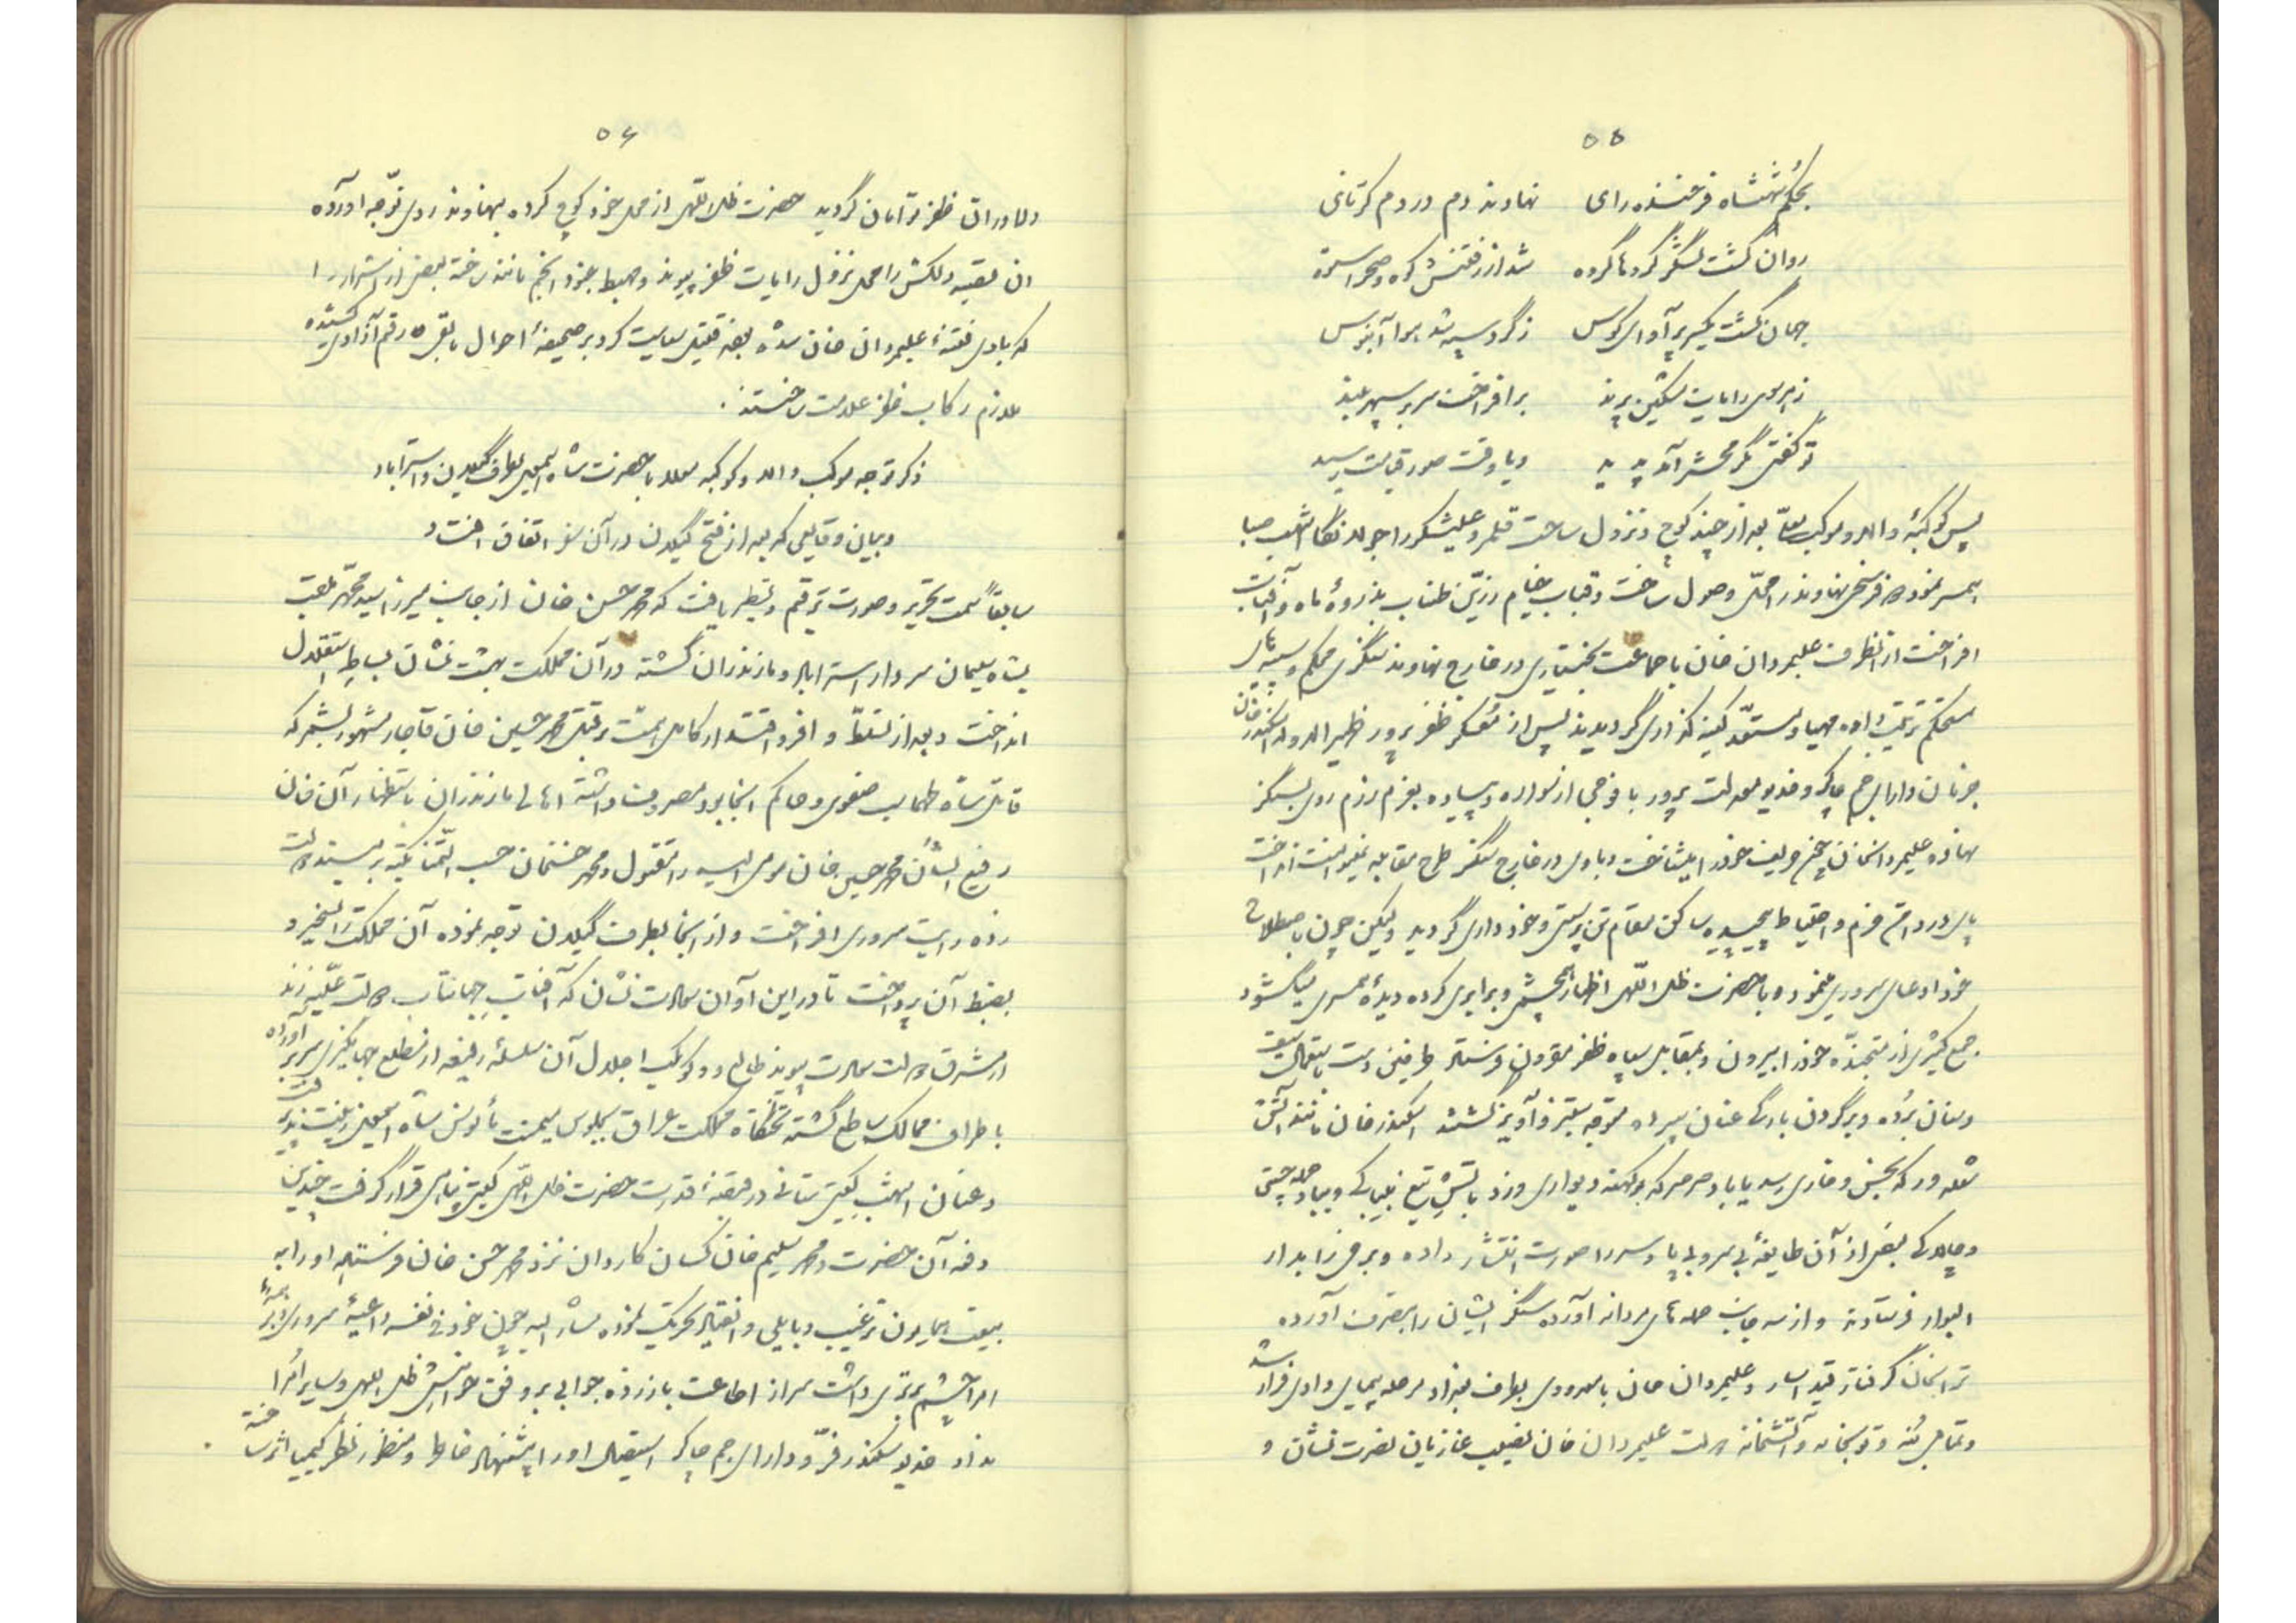 ۵۵
بحکم شهنشاه فرخنده رای نهادند دم در دم کرنای
روان گشت لشکر گروها گروه شد از رفتنش کوه و صحرا ستوه
جهان گشت یکسر پر آوای کوس ز گرد سپه شد هوا آبنوس
ز هر سوی رایات مشکین پرند برافراخت سر بر سپهر بلند
تو گفتی مگر محشر آمد پدید و یا وقت صور قیامت رسید
پس کوکبهٔ والا و موکب معلّا بعد از چند کوچ و نزول ساحت قلمرو علیشکر را جولانگاه اشهب صبا
همسر نموده فرسخی نهاوند را محلّ وصول ساخت و قباب خیام زرّین طناب بذروهٔ ماه و آفتاب
افراخت از آنطرف علیمردان خان با جماعت بختیاری در خارج نهاوند سنگری محکم و سیبه‌های
مستحکم ترتیب داده مهیا و مستعدّ کینه گذاری گردیدند پس از معسکر ظفر پرور ظهیر الدوله اسکندر خان
و دارای جم چاکر و خدیو معدلت پرور با فوجی از سواره و پیاده بعزم رزم روی بسنگر
نهاده علیمردانخان حریف خود را میشناخت و با وی در خارج سنگر طرح مقابله نمیتوانست انداخت
پای در دامن حزم و احتیاط پیچیده ساکن مقام تن پرستی و خود داری گردید ولیکن چون
خود ادعای سروری مینمود و با حضرت ظل اللّهی اظهار همچشمی و برابری کرده دیدهٔ همسری میگشود
جمع کثیری از متجنّدهٔ خود را بیرون و بمقابل سپاه ظفر مقرون فرستاد طرفین دست باستعمال سیف
و سنان برده و بر گردن بارگی عنان سپرده متوجه ستیز و آویز گشتند اسکندر خان مانند آتش
شعله ور که بخس و خاری رسد یا باد صرصر که بر کهنه دیواری وزد بآتش تیغ بیباکی و بباد حمله چستی
و چالاکی بعضی از آن طایفهٔ بی سر و پا و سر را صورت انتشار داده و برخی را بدار
البوار فرستادند و از سه جانب حمله‌های مردانه آورده سنگر ایشان را بتصرف آورده
گرفتار قید اسار و علیمردان خان با معدودی بطرف بغداد مرحله پیمای وادی فرار شد
و تمامی بُنه و توپخانه و آتشخانه علیمردان خان نصیب غازیان نصرت نشان و
۵۶
دلاوران ظفر توأمان گردید حضرت ظل اللّهی از محل خود کوچ کرده بنهاوند روی توجّه آورده
آن بقعه دلکش را محل نزول رایات ظفر پیوند و مهبط جنود انجم مانند ساخته بعضی از اشرار را
که بادی فتنهٔ علیمردان خان شده بودند قتیل سیاست کرد بر صحیفهٔ احوال مابقی رقم آزادی کشیده
ملازم رکاب ظفر علامت ساختند .
ذکر توجه موکب والا و کوکبه معلا با حضرت شاه اسمعیل بطرف گیلان و استراباد
و بیان وقایعی که بعد از فتح گیلان در آن سفر اتفاق افتاد
سابقاً سمت تحریر و صورت ترقیم و تسطیر یافت که محمد حسن خان از جانب میرزا سید محمّد ملقب
بشاه سلیمان سردار استراباد و مازندران گشته در آن مملکت بهشت نشان بساط استقلال
انداخت و بعد از تسلّط و افزود اقتدار کامل همّت بر قتل محمد حسین خان قاجار مشهور گماشته که
قاتل شاه طهماسب صفوی و حاکم آنجا بود مصروف داشته اهالی مازندران باستظهار آن خان
رفیع الشأن محمد حسین خان مومی الیه را مقتول و محمد حسنخان حسب التّمنا تکیه بر مسند دولت
زده رایت سروری افراخت و از آنجا بطرف گیلان توجه نموده آن مملکت را تسخیر و
بضبط آن پرداخت تا در این اوان سعادت نشان که آفتاب جهانتاب دولت علّیه زند
از مشرق دولت سعادت پیوند طالع و کوکب اجلال آن سلسلهٔ رفیعه از مطلع جهانگیری سر بر آورده
باطراف ممالک ساطع گشته تختگاه مملکت عراق بجلوس میمنت مأنوس شاه اسمعیل زینت پذیرفت
و عنان اشهب گیتی ستانی در قبضهٔ قدرت حضرت ظل اللّهی گیتی پناهی قرار گرفت چندین
دفعه آن حضرت محمد سلیم خان کسان کاردان نزد محمد حسن خان فرستاده او را به
بیعت همایون ترغیب و بایلی و انقیاد تحریک نموده مشار الیه چون خود فی نفسه داعیهٔ سروری و بر همهٔ
امرا چشم برتری داشت سر از اطاعت باز زده جوابی بر وفق خواهش ظل اللّهی و سایر امرا
نداد خدیو سکندر فرّ و دارای جم چاکر استیصال او را پیشنهاد خاطر و منظور نظر کیمیا اثر ساخته .